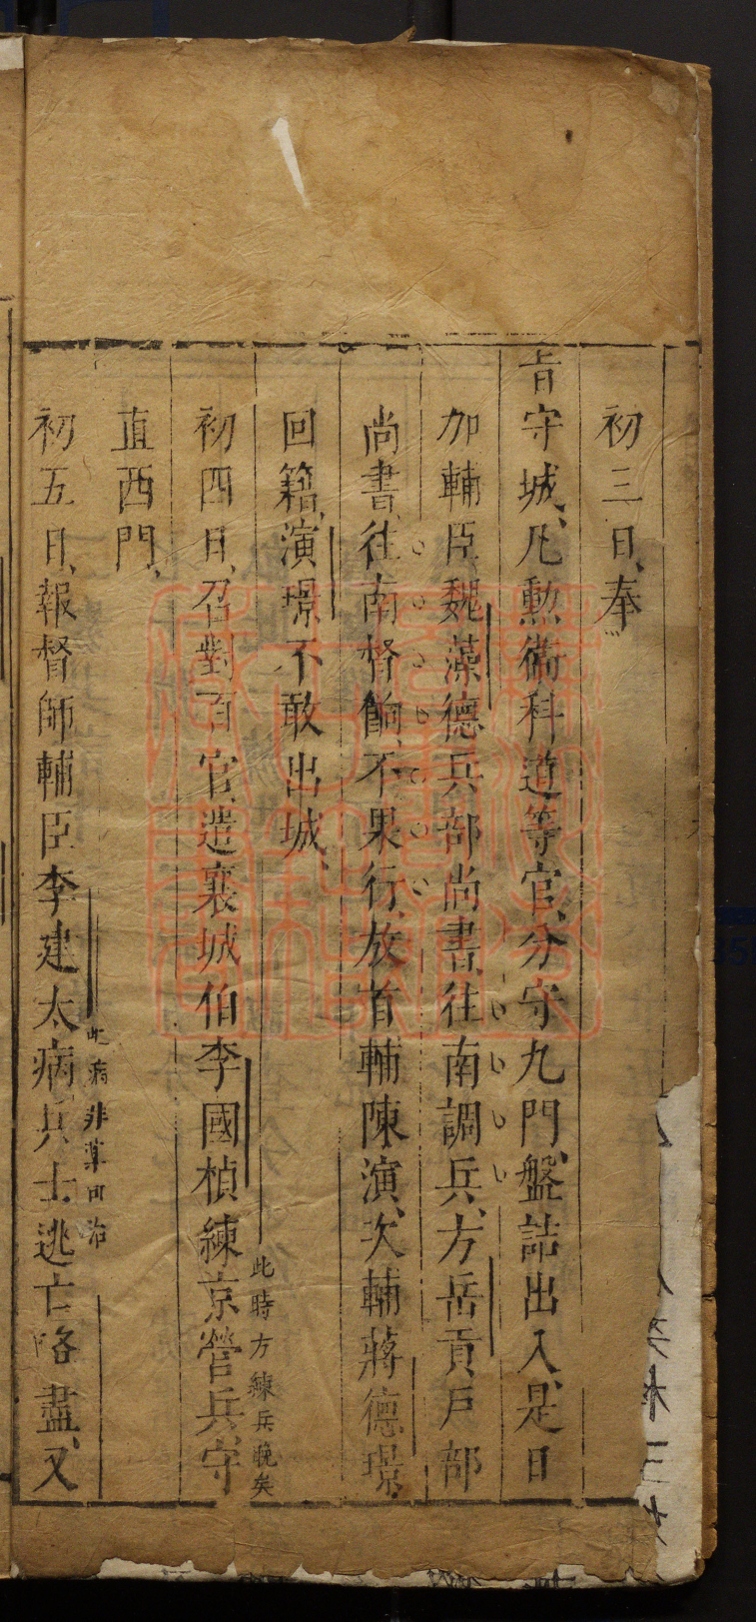 初三日、奉
旨守城、凡勲衛科道等官、分守九門、盤詰出入、是日
加輔臣魏藻德兵部尚書、往南調兵、方岳貢戸部
尚書、往南督餉、不果行、放首輔陳演、次輔蔣德璟、
回籍、演璟不敢出城、
初四日、召對百官、遣襄城伯李國楨練京營兵、守
此時方練兵晚矣
直西門、
初五日、報督師輔臣李建太病、兵士逃亡略盡、又
此病非草可治